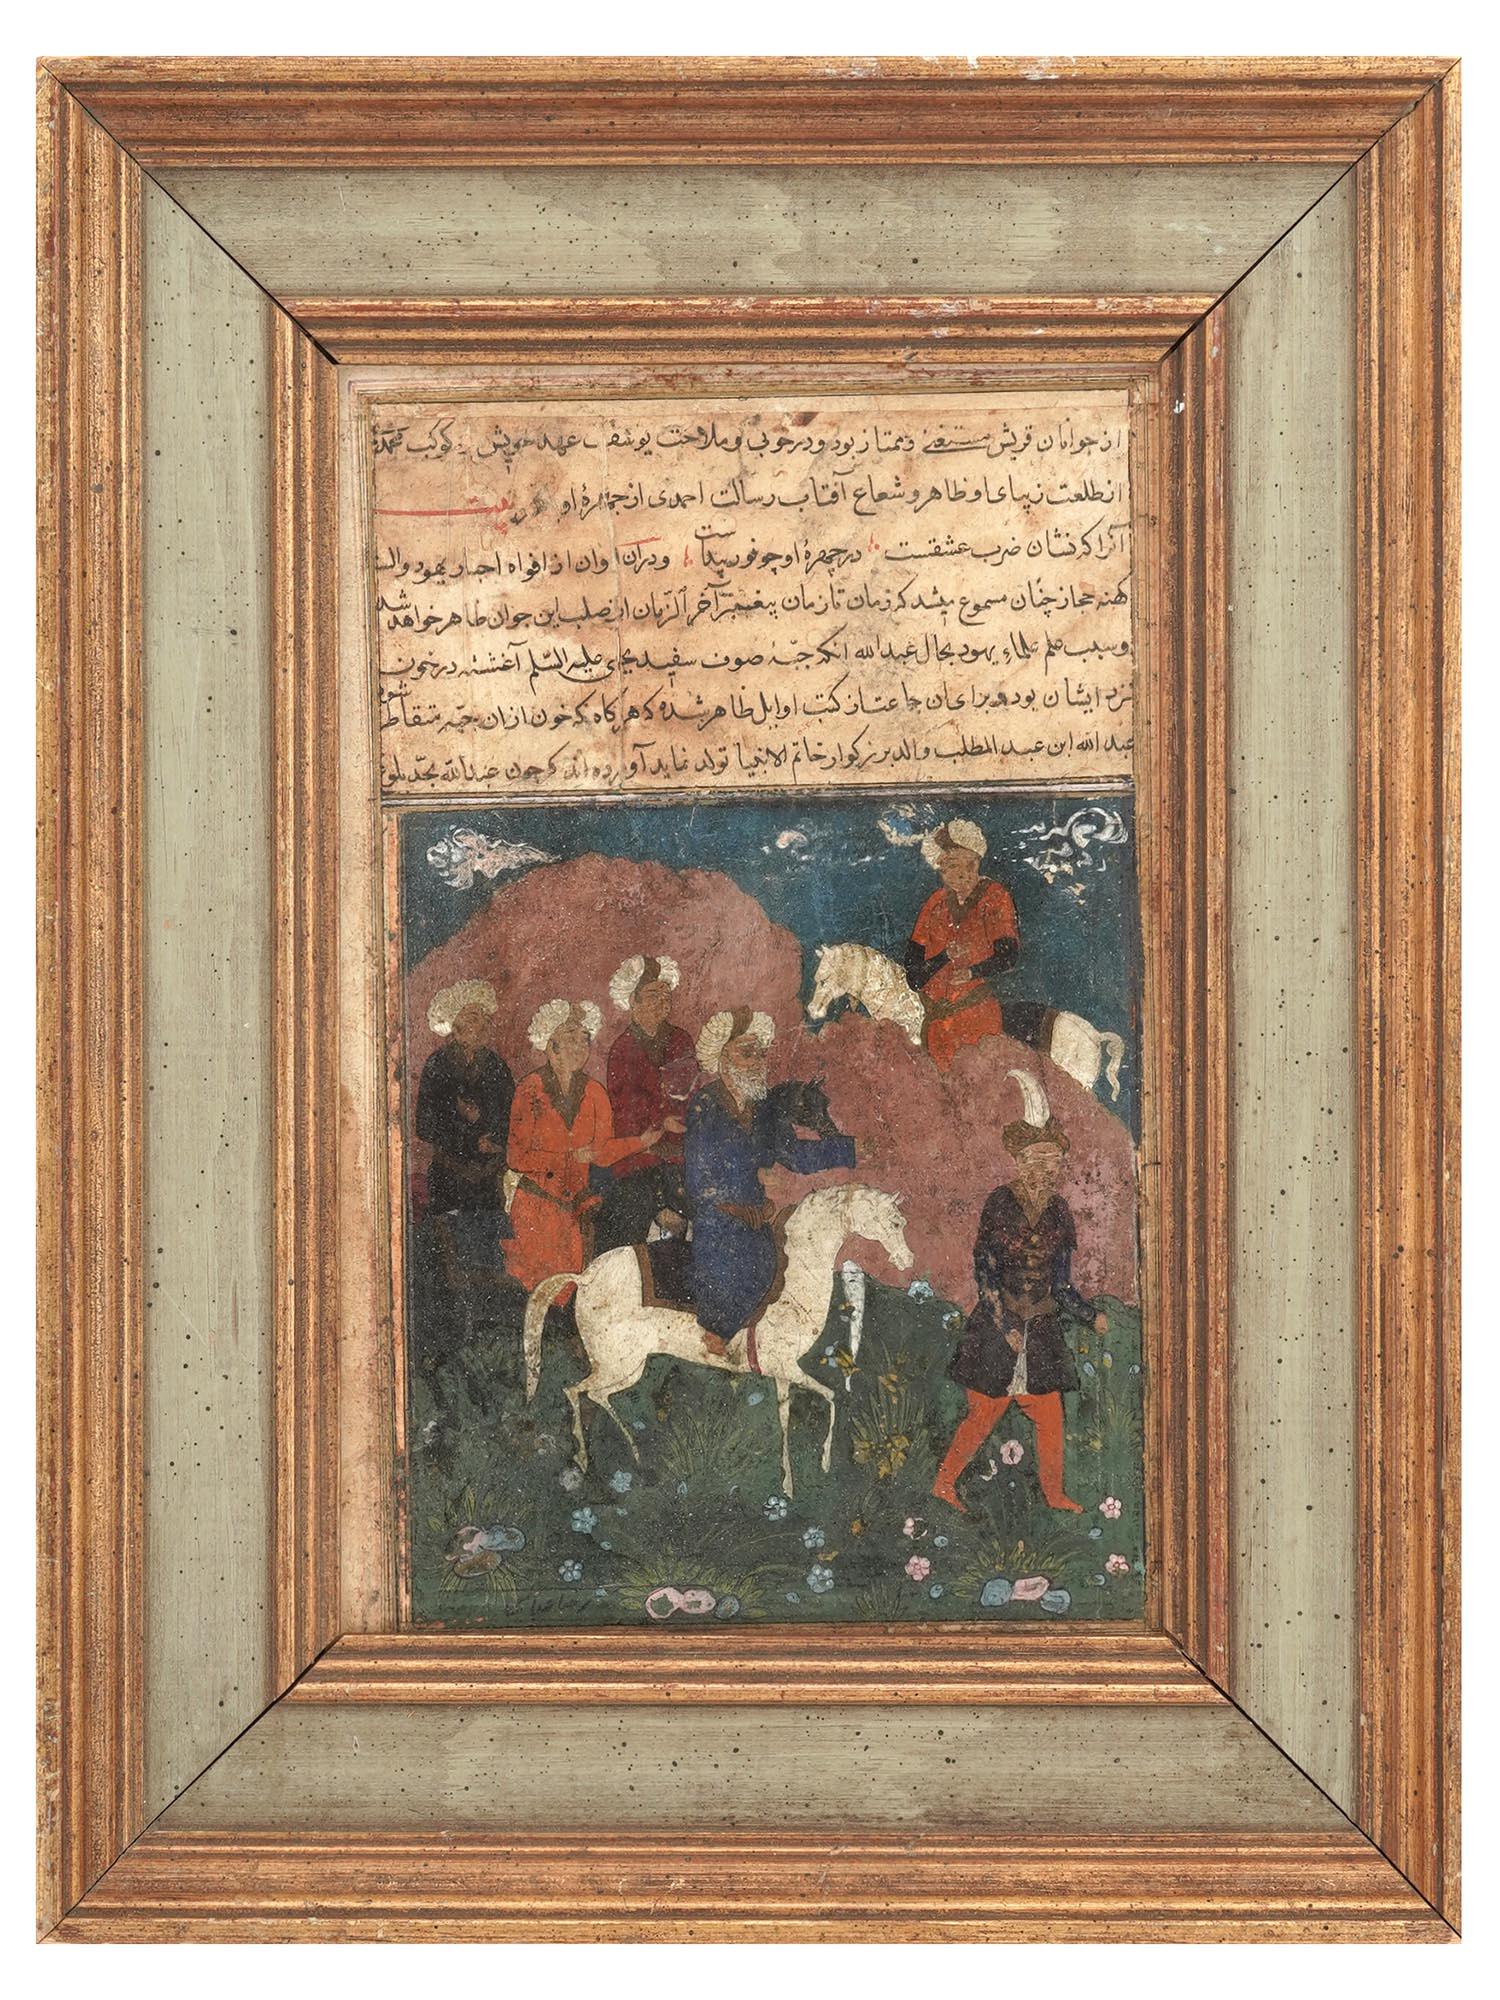 از جوانان قریش مستغنی و ممتاز بود و در خوبی و ملاحت یوسف عهد خویش کوکب
از طلعت زیبای او ظاهر و شعاع آفتاب رسالت احمدی از چهرهٔ او بیت
آنرا که نشان ضرب عشقست در چهرهٔ او چو نور پیداست و در آن اوان از افواه احبار یهود و
کهنه حجاز چنان مسموع میشد که زمان تا زمان پیغمبر آخر الزمان از صلب این جوان ظاهر خواهد شد
و سبب علم علماء یهود بحال عبدالله آنکه جبهٔ صوف سفید یحیی علیه السلم آغشته در خون
نزد ایشان بود و برای آن جماعت از کتب اوایل ظاهر شده که هر گاه که خون از آن جبه متقاطر شود
عبدالله ابن عبد المطلب والد بزرکوار خاتم الانبیا تولد نماید آورده اند که چون عبدالله بحد بلوغ